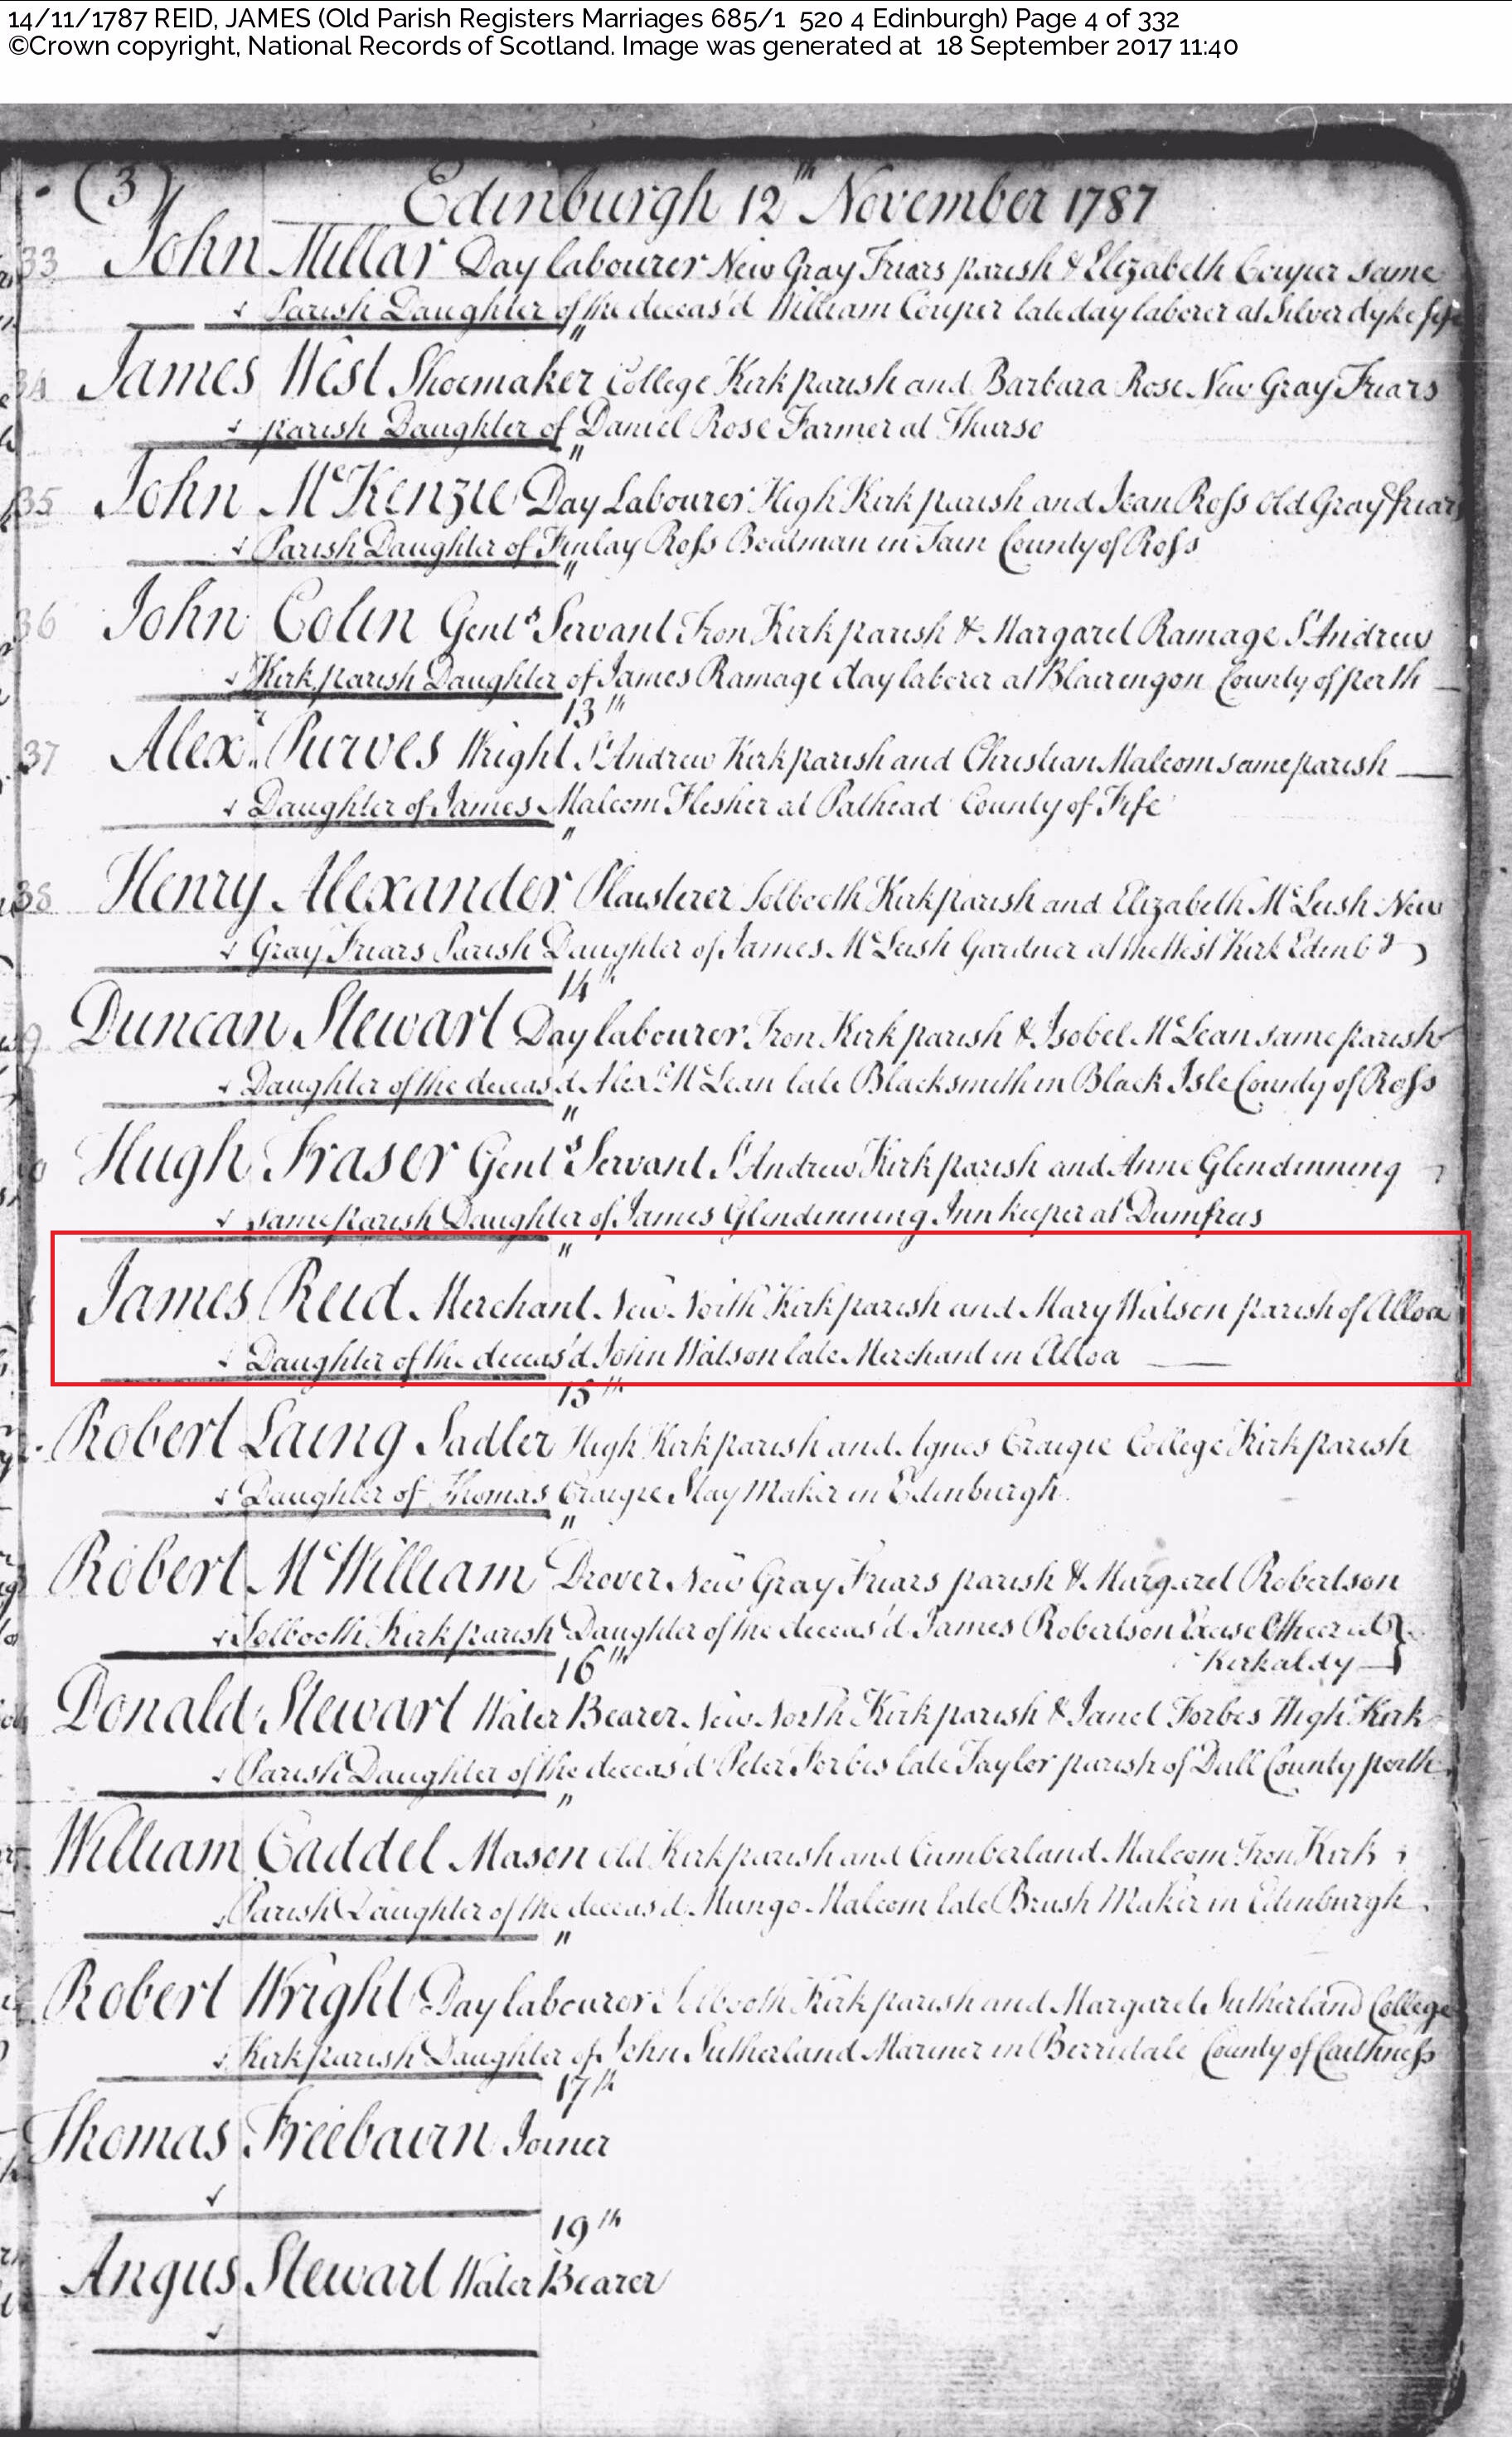 14/11/1787 REID, JAMES (Old Parish Registers Marriages 685/1 520 4 Edinburgh) Page 4 of 332
©Crown copyright, National Records of Scotland. Image was generated at 18 September 2017 11:40
(3) Edinburgh 12th November 1787
33 John Millar Day labourer New Gray Friars parish & Elizabeth Couper same
Parish Daughter of the deceas'd William Couper late day laborer at Silverdyke fife
"
34 James West Shoemaker College Kirk parish and Barbara Rose New Gray Friars
parish Daughter of Daniel Rose Farmer at Thurso
"
35 John McKenzie Day Labourer High Kirk parish and Jean Ross Old Gray friars
Parish Daughter of Finlay Ross Boatman in Tain County of Ross
"
36 John Colin Gents Servant Tron Kirk parish & Margaret Ramage St Andrew
Kirk parish Daughter of James Ramage day laborer at Blairengon County of perth
13th
37 Alexr. Purves Wright St Andrew Kirk parish and Christian Malcom same parish
Daughter of James Malcom Flesher at Pathead County of Fife
"
38 Henry Alexander Plaisterer Tolbooth Kirk parish and Elizabeth McLeish New
Gray Friars Parish Daughter of James McLeish Gardner at the West Kirk Edinbg
14th
Duncan Stewart Day labourer Tron Kirk parish & Isobel McLean same parish
Daughter of the deceas'd Alexr McLean late Blacksmith in Black Isle County of Ross
"
Hugh Fraser Gents Servant St Andrew Kirk parish and Anne Glendinning
same parish Daughter of James Glendinning Innkeeper at Dumfries
"
James Reid Merchant New North Kirk parish and Mary Watson parish of Alloa
Daughter of the deceas'd John Watson late Merchant in Alloa
15th
Robert Laing Sadler High Kirk parish and Agnes Craigie College Kirk parish
Daughter of Thomas Craigie Stay Maker in Edinburgh
"
Robert McWilliam Drover New Gray Friars parish & Margaret Robertson
Tolbooth Kirk parish Daughter of the deceas'd James Robertson Excise Officer at
Kirkaldy
16th
Donald Stewart Water Bearer New North Kirk parish & Janet Forbes High Kirk
Parish Daughter of the deceas'd Peter Forbes late Taylor parish of Dull County perth
"
William Caddel Mason old Kirk parish and Cumberland Malcom Tron Kirk
Parish Daughter of the deceas'd Mungo Malcom late Brush Maker in Edinburgh
"
Robert Wright Day labourer Tolbooth Kirk parish and Margaret Sutherland College
Kirk parish Daughter of John Sutherland Mariner in Berridale County of Caithness
17th
Thomas Freebairn Joiner
19th
Angus Stewart Water Bearer